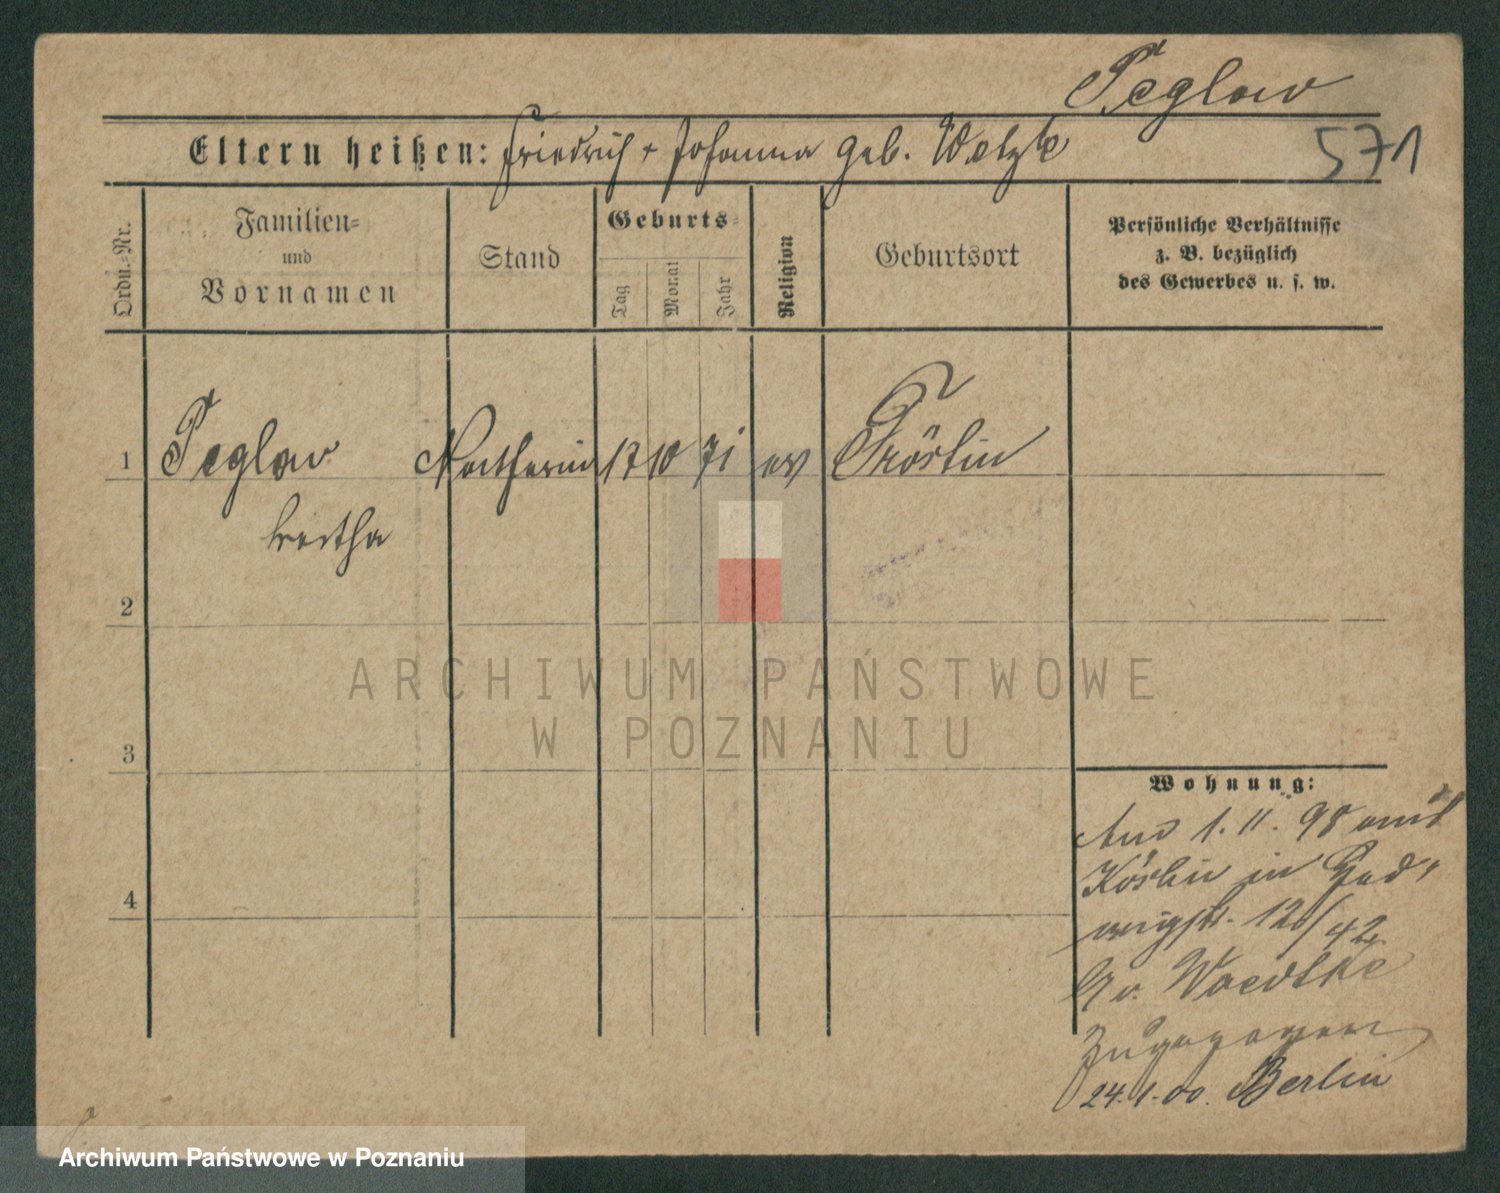 Peglow
Eltern heißen: Friedrich + Johanna geb. Welzke
571
Ordn.-Nr.
Familien-
und
Vornamen
Stand
Geburts-
Tag
Monat
Jahr
Religion
Geburtsort
Persönliche Verhältnisse
z. B. bezüglich
des Gewerbes u. s. w.
1
Peglow
17 10 71 ev
Bertha
2
ARCHIWUM PAŃSTWOWE
W POZNANIU
3
Wohnung:
1. 11. 98
Köslin in Hed-
wigstr. 12 /
4
v. Woedtke
zugezogen
24.1.00. Berlin
Archiwum Państwowe w Poznaniu